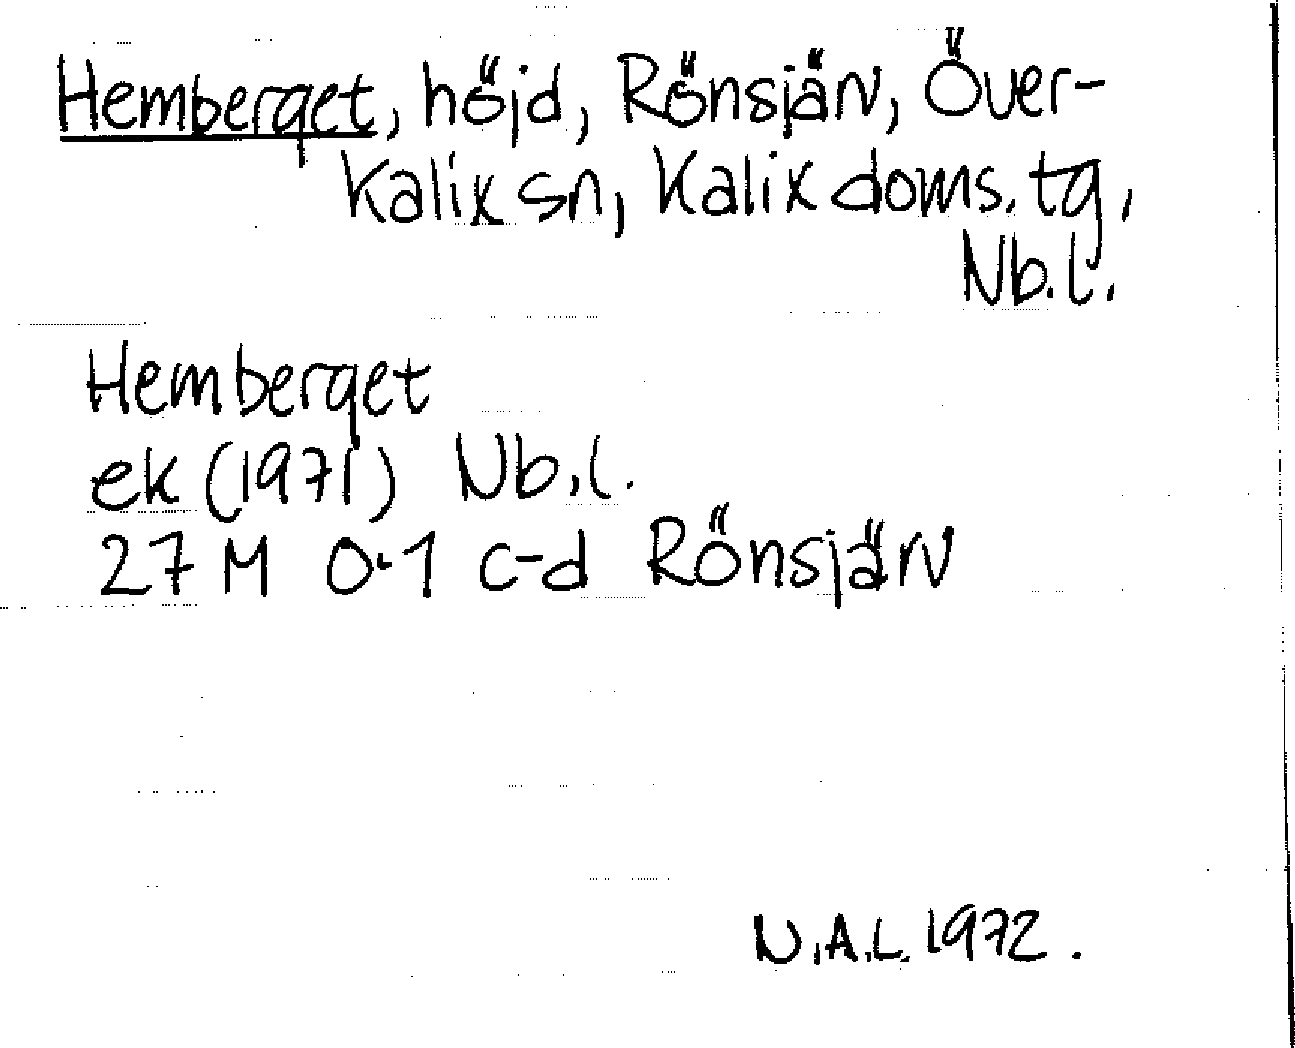 Hemberget, höjd, Rönsjärv, Över-
Kalix sn, Kalix doms. tg,
Nb.l.
Hemberget
ek (1971) Nb.l.
27 M 0-1 c-d Rönsjärv
N.A.L. 1972.